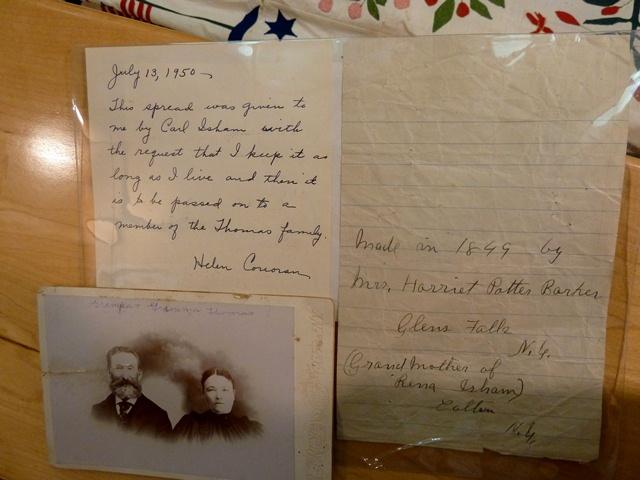 July 13, 1950
This spread was given to
me by Carl Isham with
the request that I keep it as
long as I live and then it
is to be passed on to a
member of the Thomas family.
Helen Corcoran
Made in 1849 by
Mrs. Harriet Potter Barker
Glens Falls
N.Y.
(Grandmother of
Rena Isham)
N.Y.
Grampa Gramma Thomas